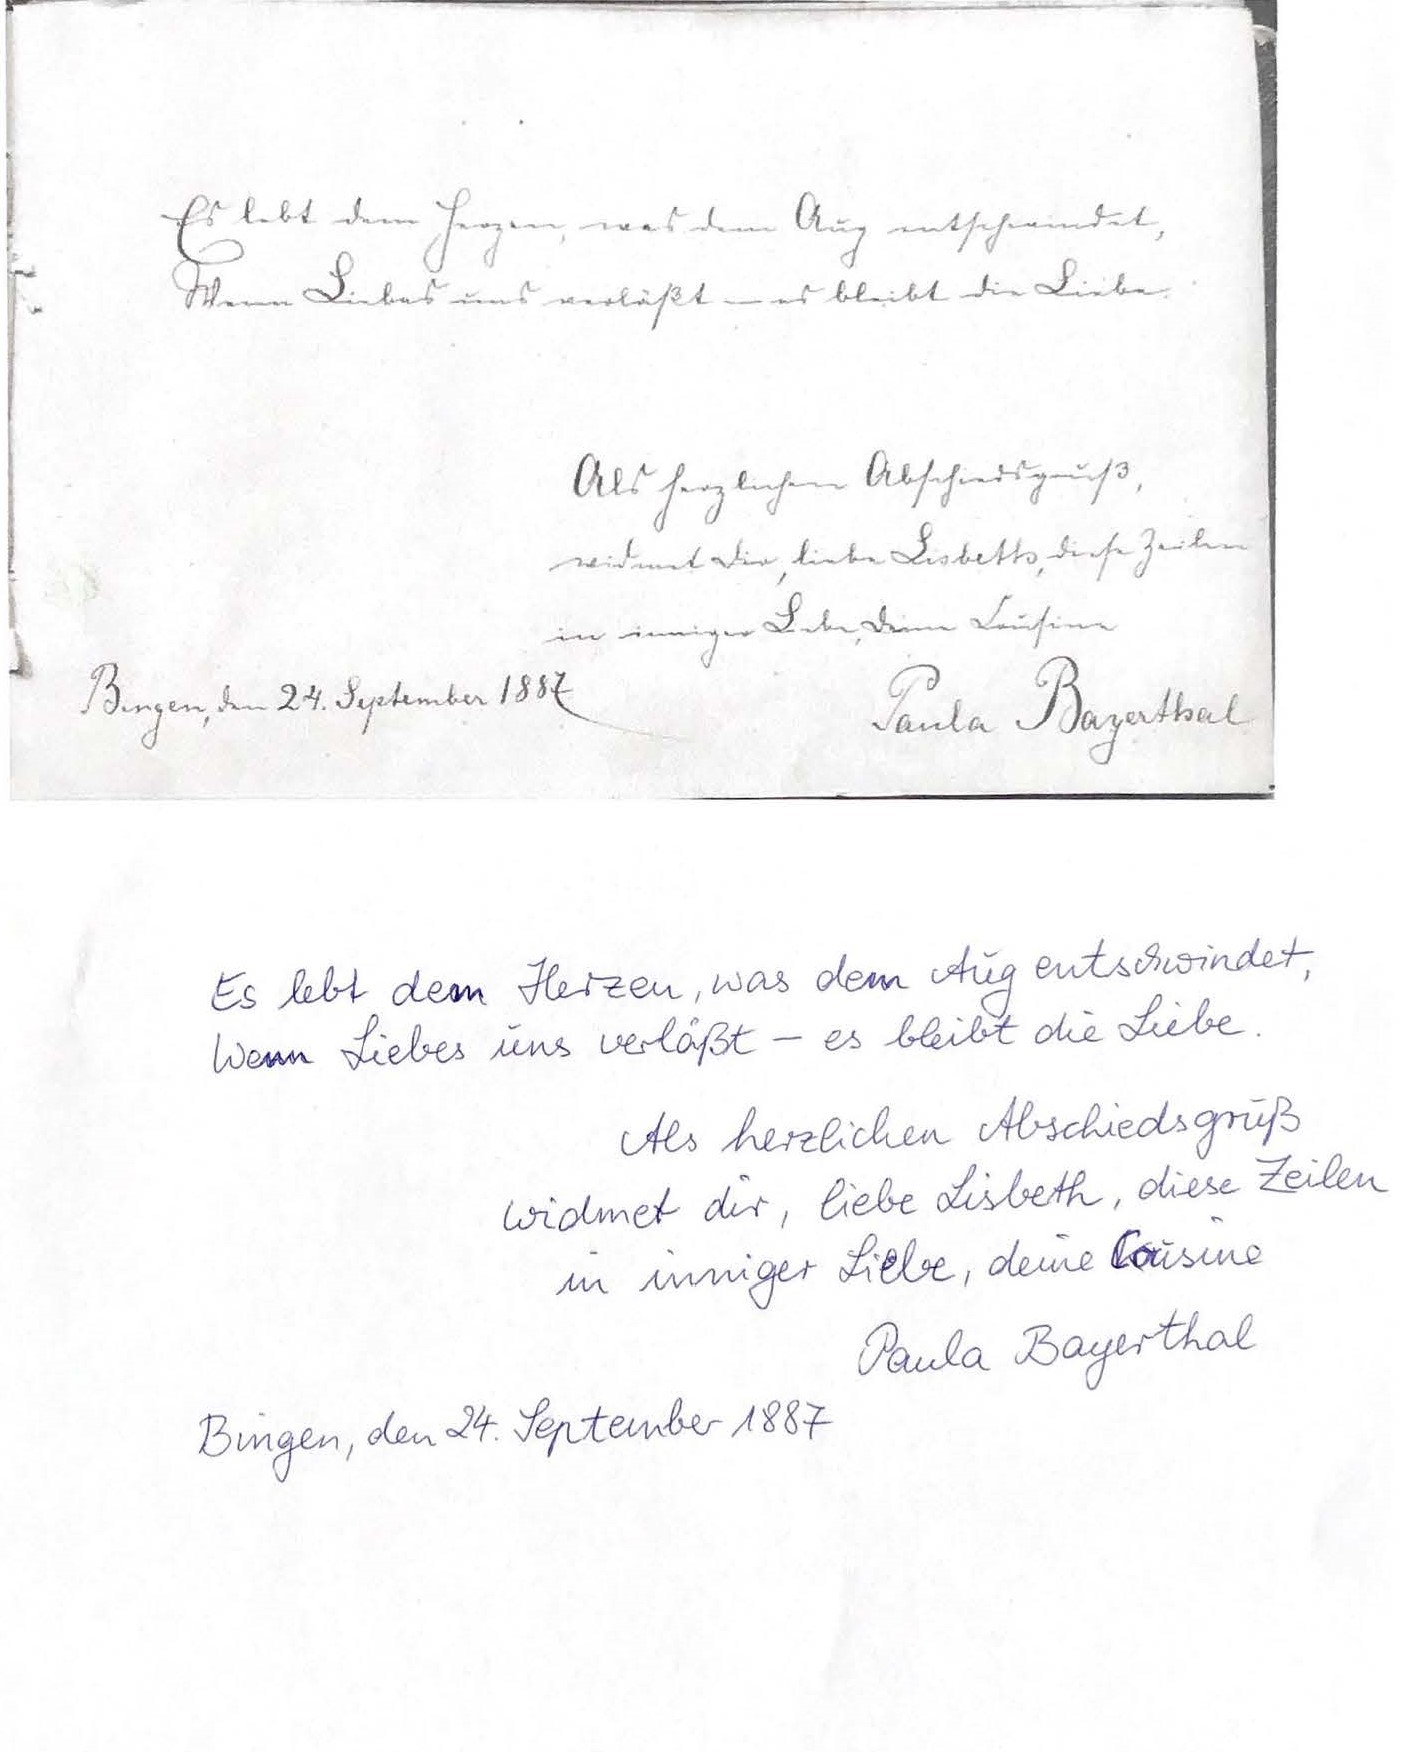 Es lebt dem Herzen, was dem Aug entschwindet,
Wenn Liebes uns verläßt – es bleibt die Liebe.
Als herzlichen Abschiedsgruß,
widmet dir, liebe Lisbeth, diese Zeilen
in inniger Liebe, deine Cousine
Bingen, den 24. September 1887
Paula Bayerthal
Es lebt dem Herzen, was dem Aug entschwindet,
Wenn Liebes uns verläßt – es bleibt die Liebe.
Als herzlichen Abschiedsgruß
widmet dir, liebe Lisbeth, diese Zeilen
in inniger Liebe, deine Cousine
Paula Bayerthal
Bingen, den 24. September 1887